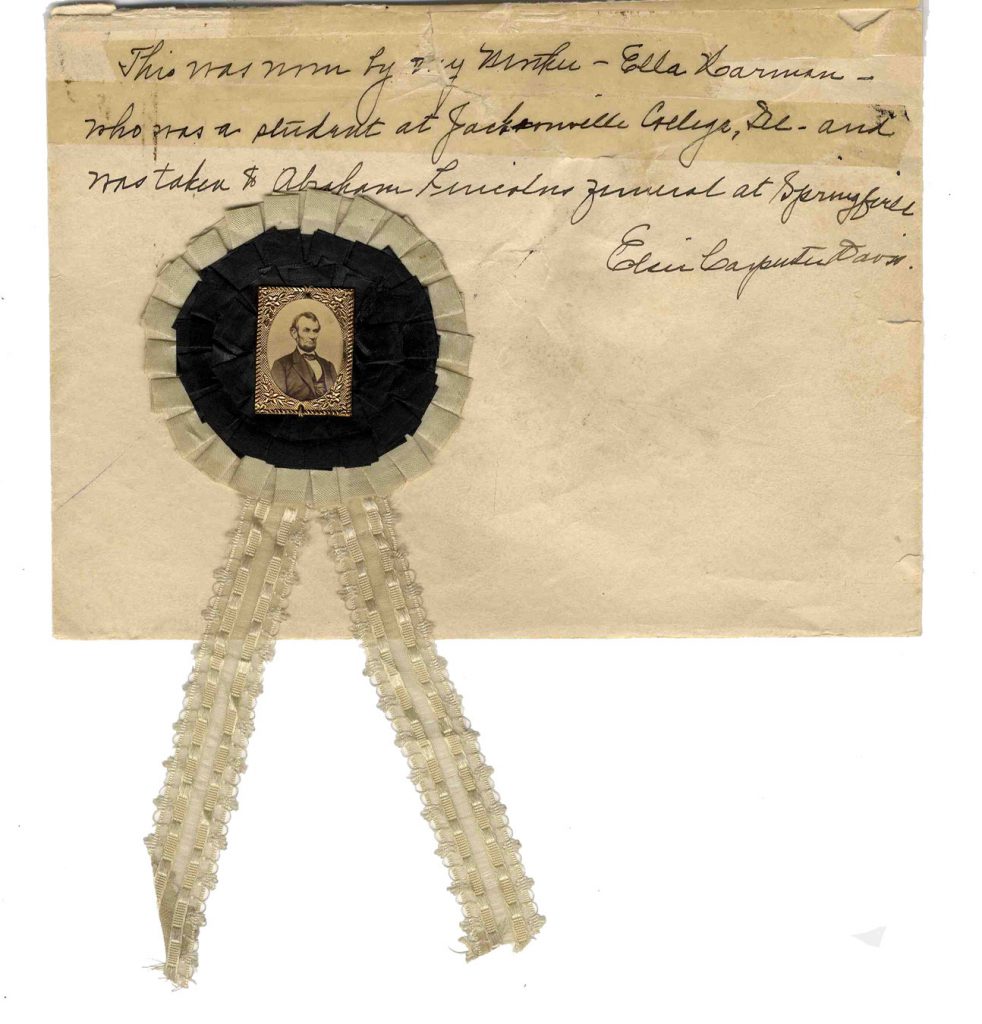 This was worn by my Mother - Ella Harman -
who was a student at Jacksonville College, Ill - and
was taken to Abraham Lincolns funeral at Springfield
Elsie Carpenter Davis.